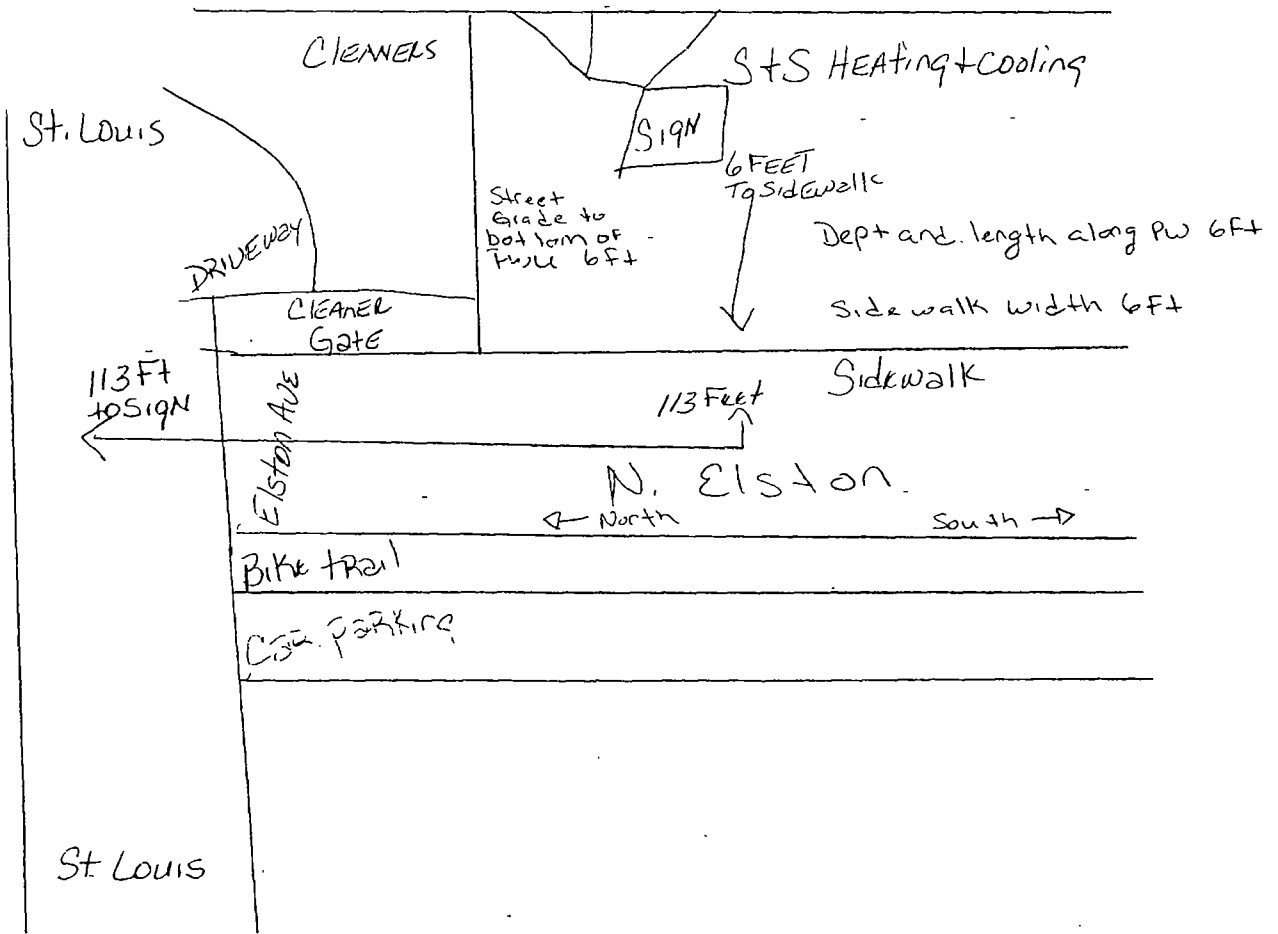 CLEANERS
S+S HEAting+cooling
St. Louis
SigN
6 FEET
To SidEwalk
Street
Grade to
bottom of
6ft
Dept and. length along PW 6Ft
DRIVEWAY
CLEANER
GatE
Side walk width 6Ft
Sidewalk
113 Ft
to SigN
Elston AVE
113 Feet
N. Elston.
North
South
Bike tRail
Car parking
St Louis